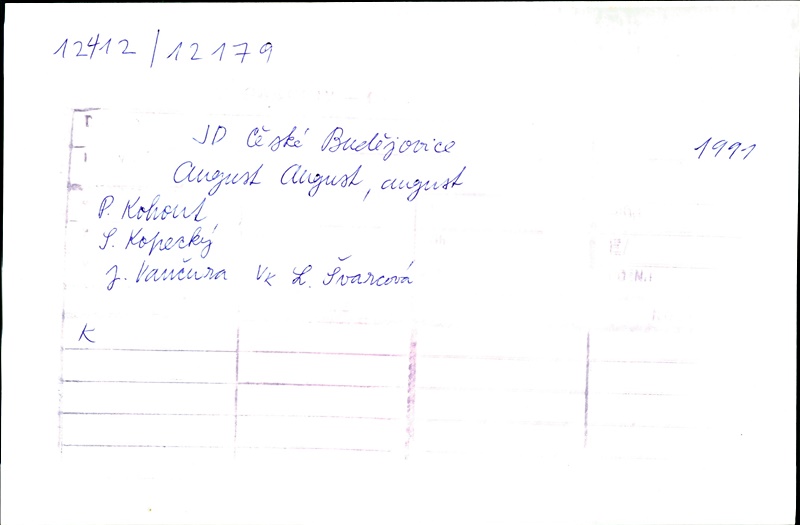 12412/12179
JD České Budějovice 1991
August August, august
P. Kohout
S. Kopecký
J. Vančura Vk L. Švarcová
K